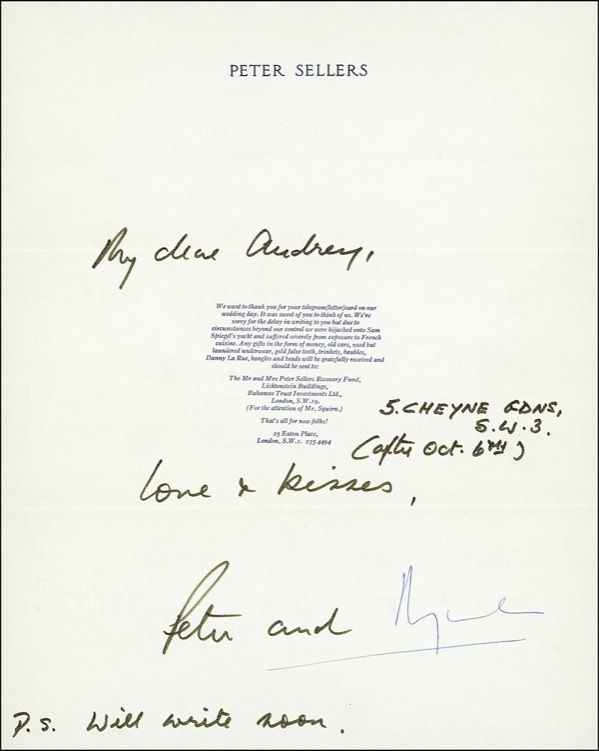 PETER SELLERS
My dear Audrey,
We want to thank you for your telegram/letter/card on our
wedding day. It was sweet of you to think of us. We're
sorry for the delay in writing to you but due to
circumstances beyond our control we were hijacked onto Sam
Spiegl's yacht and suffered severely from exposure to French
cuisine. Any gifts in the form of money, old cars, used but
laundered underwear, gold false teeth, trinkets, baubles,
Danny La Rue, bangles and beads will be gratefully received and
should be sent to:
The Mr and Mrs Peter Sellers Recovery Fund,
Licktenstein Buildings,
Bahamas Trust Investments Ltd.,
London, S.W.19.
(For the attention of Mr. Squirn.)
That's all for now folks!
25 Eaton Place,
London, S.W.1. 235 4494
5. CHEYNE GDNS,
S.W.3.
(after Oct. 6TH)
Love & kisses,
Peter and
P.S. Will write soon.